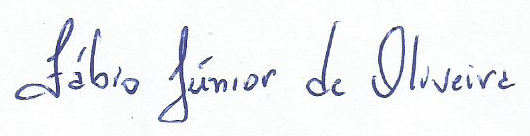 Fábio Júnior de Oliveira